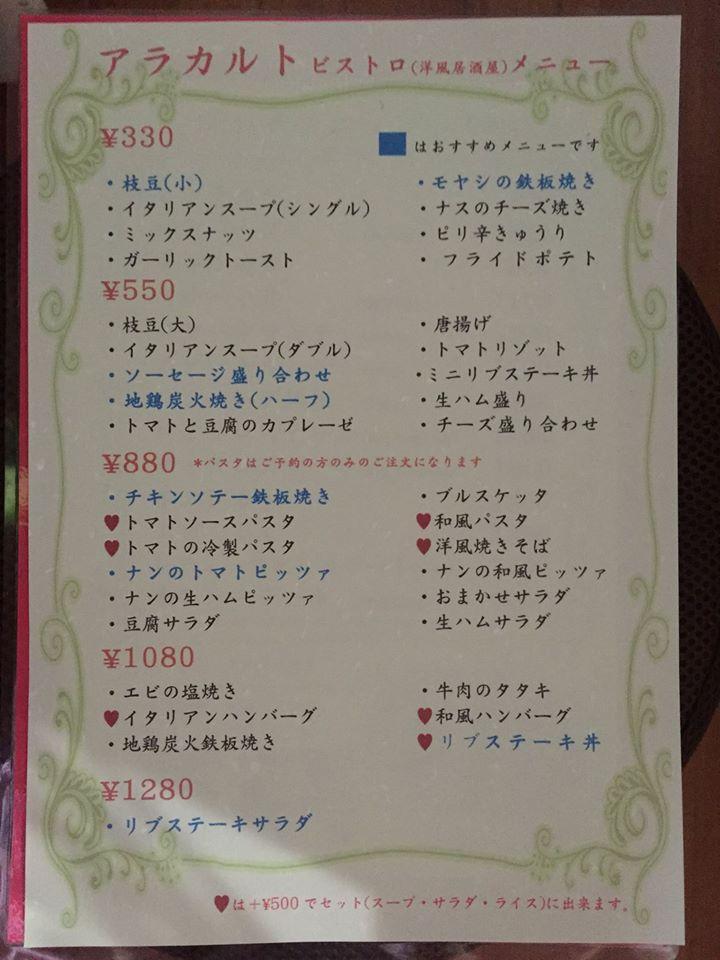 アラカルト ビストロ(洋風居酒屋)メニュー
¥330
はおすすめメニューです
・枝豆(小)
・イタリアンスープ(シングル)
・ミックスナッツ
・ガーリックトースト
・モヤシの鉄板焼き
・ナスのチーズ焼き
・ピリ辛きゅうり
・フライドポテト
¥550
・枝豆(大)
・イタリアンスープ(ダブル)
・ソーセージ盛り合わせ
・地鶏炭火焼き(ハーフ)
・トマトと豆腐のカプレーゼ
・唐揚げ
・トマトリゾット
・ミニリブステーキ丼
・生ハム盛り
・チーズ盛り合わせ
¥880 *パスタはご予約の方のみのご注文になります
・チキンソテー鉄板焼き
♥トマトソースパスタ
♥トマトの冷製パスタ
・ナンのトマトピッツァ
・ナンの生ハムピッツァ
・豆腐サラダ
・ブルスケッタ
♥和風パスタ
♥洋風焼きそば
・ナンの和風ピッツァ
・おまかせサラダ
・生ハムサラダ
¥1080
・エビの塩焼き
♥イタリアンハンバーグ
・地鶏炭火鉄板焼き
・牛肉のタタキ
♥和風ハンバーグ
♥リブステーキ丼
¥1280
・リブステーキサラダ
♥は+¥500でセット(スープ・サラダ・ライス)に出来ます。